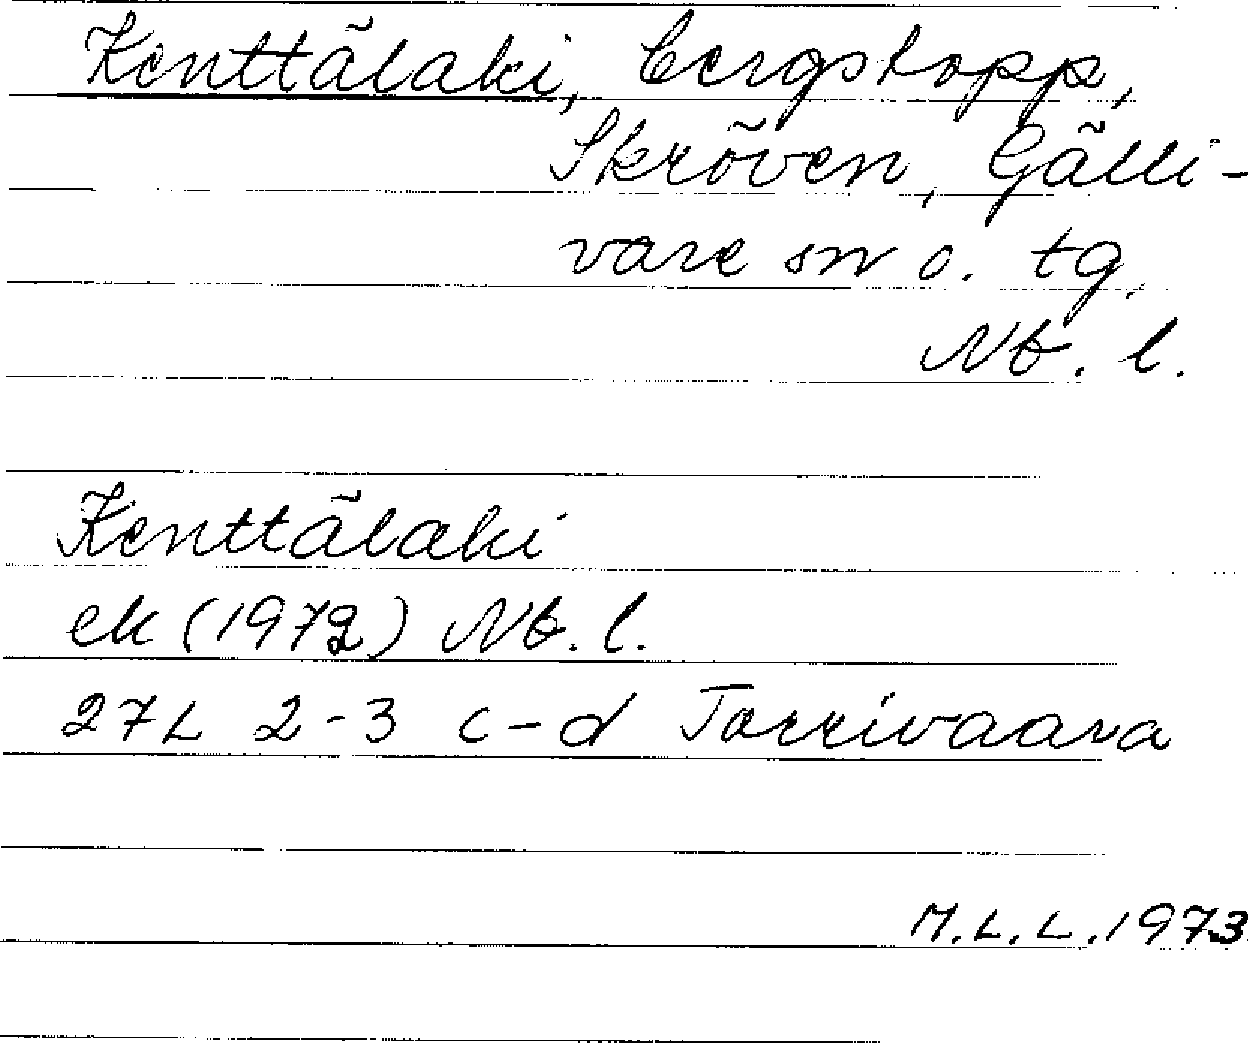 Kenttälaki, bergstopp,
Skröven, Gälli-
vare sn o. tg,
Nb. l.
Kenttälaki
ek (1972) Nb. l.
27L 2-3 c-d Tarrivaara
M.L.L. 1973